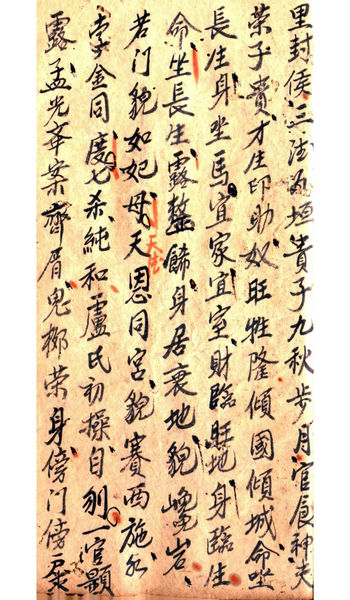 里封侯三法為垣貴子九秋步月官食神夫
榮子貴才生印助奴旺牲隆傾國傾城命坐
長生身坐馬宜家宜室財臨旺地身臨生
命坐長生露歸身居衰地貌岩
若門貌如妃母天恩同宮貌賽西施水
孛金同度七杀純和盧氏初操自刎一官顯
露孟光案齊眉鬼鄉荣身傍門傍